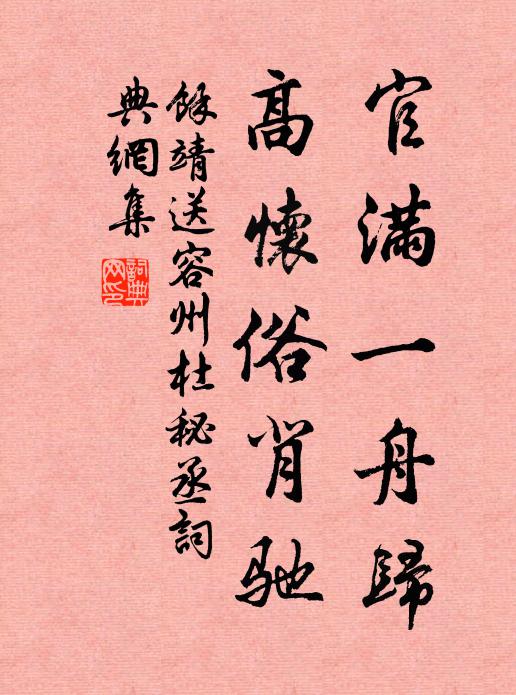 官滿一舟歸
高懷俗背馳
餘靖送容州杜秘丞詞
典網集
詞典
网印